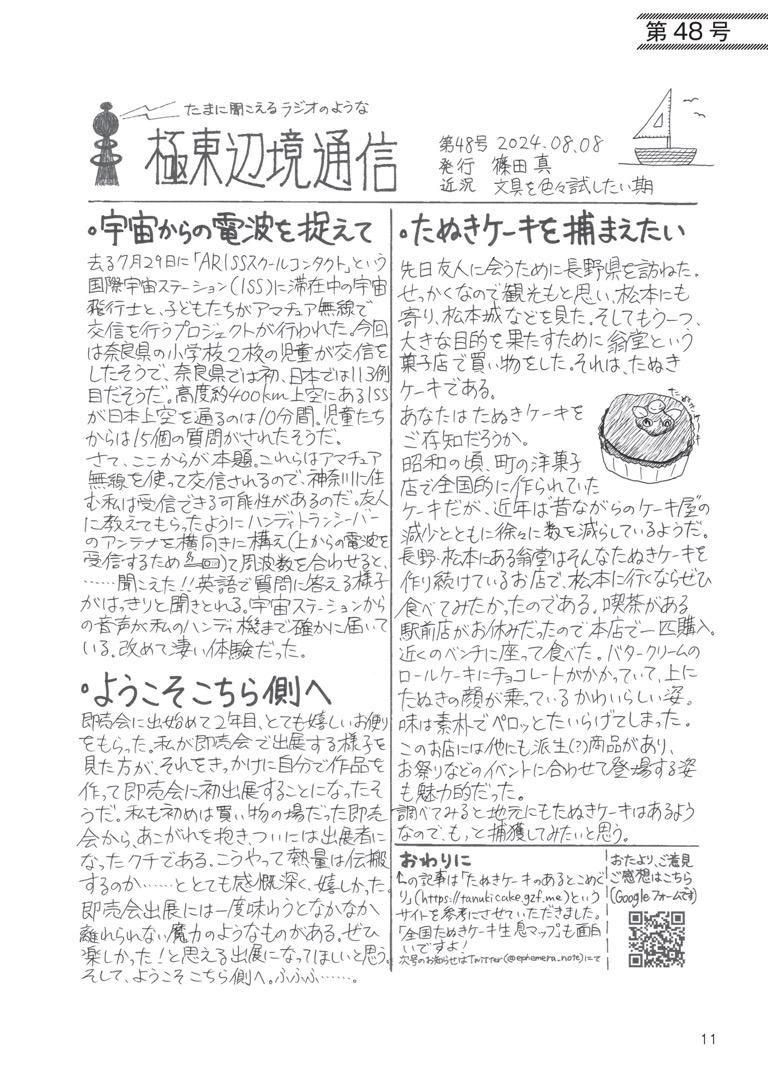 第48号
たまに聞こえるラジオのような
極東辺境通信
第48号 2024.08.08
発行 篠田 真
近況 文具を色々試したい期
•宇宙からの電波を捉えて
去る7月29日に「ARISSスクールコンタクト」という
国際宇宙ステーション(ISS)に滞在中の宇宙
飛行士と、子どもたちがアマチュア無線で
交信を行うプロジェクトが行われた。今回
は奈良県の小学校2校の児童が交信を
したそうで、奈良県では初、日本では113例
目だそうだ。高度約400km上空にあるISS
が日本上空を通るのは10分間。児童たち
からは15個の質問がされたそうだ。
さて、ここからが本題。これらはアマチュア
無線を使って交信されるので、神奈川に住
む私は受信できる可能性があるのだ。友人
に教えてもらったようにハンディトランシーバー
のアンテナを横向きに構え(上からの電波を
受信するため)て周波数を合わせると、
……聞こえた!!英語で質問に答える様子
がはっきりと聞きとれる。宇宙ステーションから
の音声が私のハンディ機まで確かに届いて
いる。改めて凄い体験だった。
•ようこそこちら側へ
即売会に出始めて2年目、とても嬉しいお便り
をもらった。私が即売会で出展する様子を
見た方が、それをきっかけに自分で作品を
作って即売会に初出展することになったそ
うだ。私も初めは買い物の場だった即売
会から、あこがれを抱き、ついには出展者に
なったクチである。こうやって熱量は伝搬
するのか……ととても感慨深く、嬉しかった。
即売会出展には一度味わうとなかなか
離れられない魔力のようなものがある。ぜひ
楽しかった!と思える出展になってほしいと思う。
そして、ようこそこちら側へ。ふふふ……。
•たぬきケーキを捕まえたい
先日友人に会うために長野県を訪ねた。
せっかくなので観光もと思い、松本にも
寄り、松本城などを見た。そしてもう一つ、
大きな目的を果たすために翁堂という
菓子店で買い物をした。それは、たぬき
ケーキである。
たぬきケーキ
あなたはたぬきケーキを
ご存知だろうか。
昭和の頃、町の洋菓子
店で全国的に作られていた
ケーキだが、近年は"昔ながらのケーキ屋"の
減少とともに徐々に数を減らしているようだ。
長野・松本にある翁堂はそんなたぬきケーキを
作り続けているお店で、松本に行くならぜひ
食べてみたかったのである。喫茶がある
駅前店がお休みだったので本店で一匹購入。
近くのベンチに座って食べた。バタークリームの
ロールケーキにチョコレートがかかっていて、上に
たぬきの顔が乗っているかわいらしい姿。
味は素朴でペロッとたいらげてしまった。
このお店には他にも派生(?)商品があり、
お祭りなどのイベントに合わせて登場する姿
も魅力的だった。
調べてみると地元にもたぬきケーキはあるよう
なので、もっと捕獲してみたいと思う。
おわりに
↑の記事は「たぬきケーキのあるとこめぐ
り」(https://tanukicake.gzf.me)という
サイトを参考にさせていただきました。
「全国たぬきケーキ生息マップ」も面白
いですよ!
次号のお知らせはTwitter(@ephemera_note)にて
おたより、ご意見
ご感想はこちら
(Googleフォームです)
11